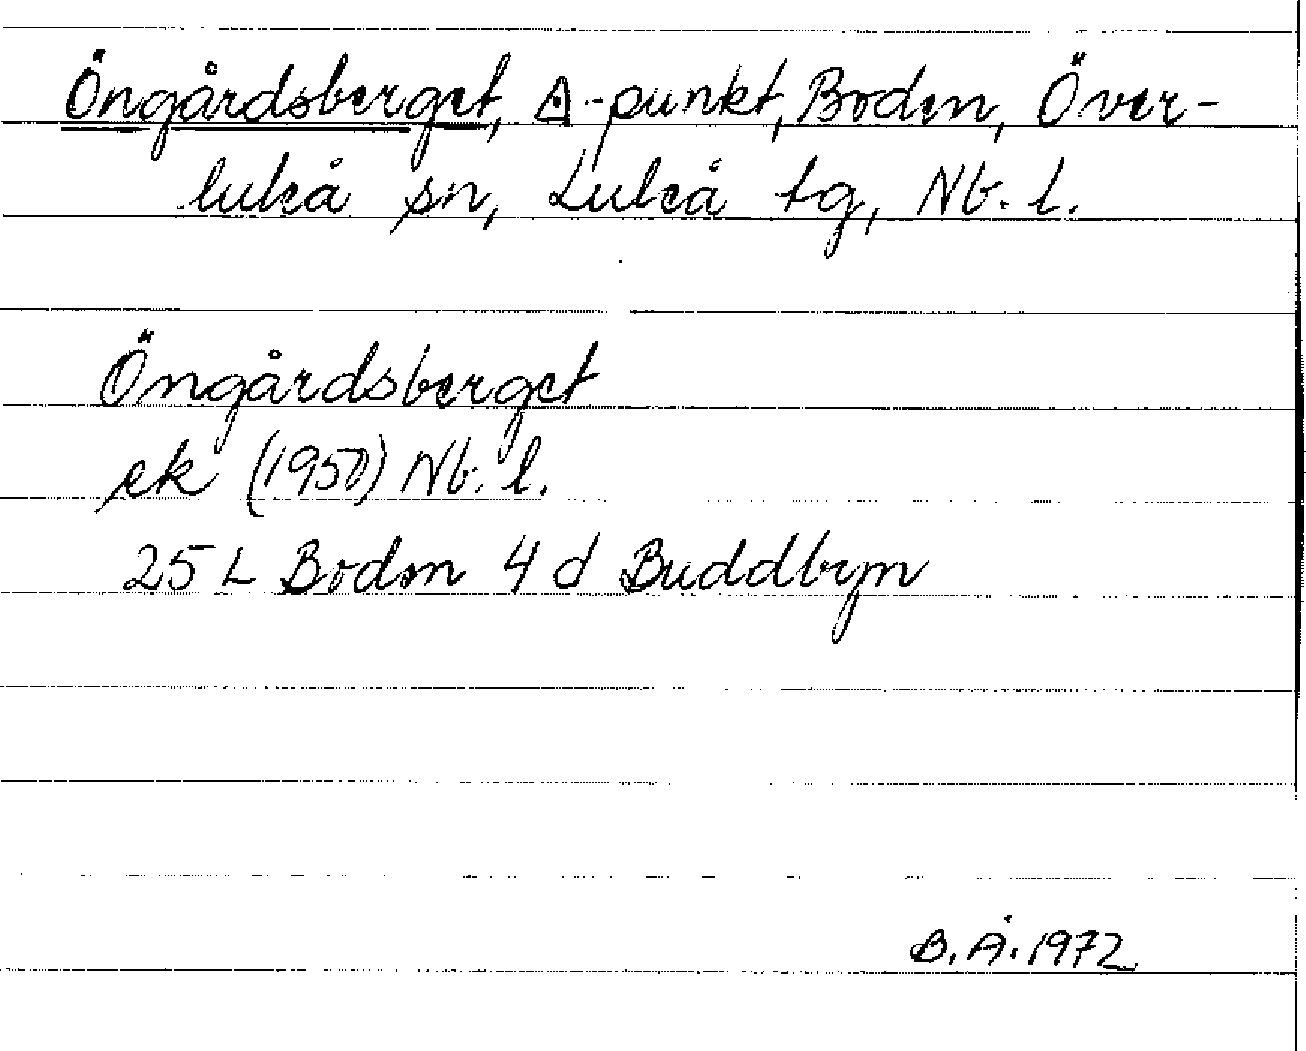 Öngårdsberget, △-punkt, Boden, Över-
luleå sn, Luleå tg, Nb. l.
Öngårdsberget
ek (1950) Nb. l.
25 L Boden 4 d Buddbyn
B. Å. 1972